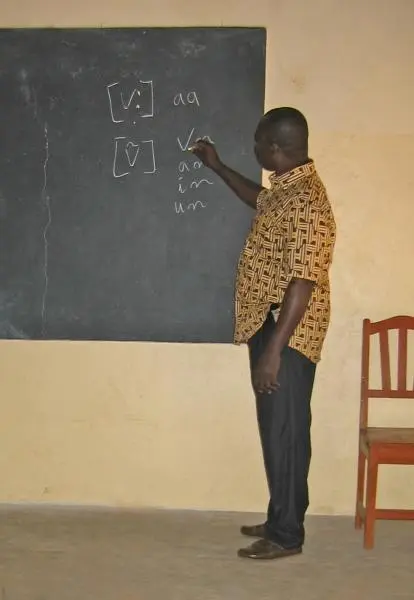 [Vː] aa
[Ṽ] Vn
an
in
un